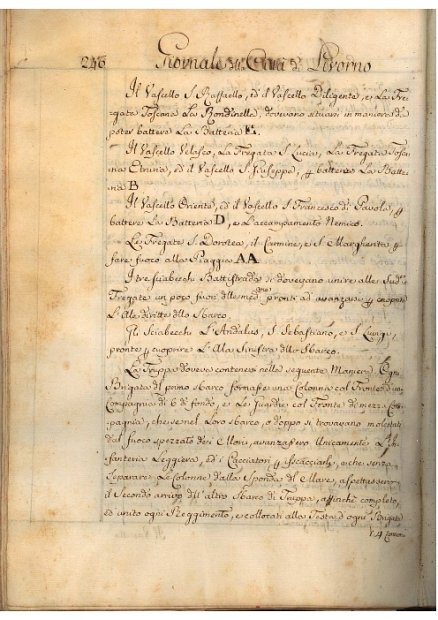 246 Giornale di Città di Livorno
Il Vascello S. Raffaello, ed il Vascello Diligente, e La Fre
gata Toscana La Rondinella, dovevano situarsi in maniera da
poter battere La Batteria E.
Il Vascello Velasco, La Fregata S. Lucia, La Fregata Tosca
na Etruria, ed il Vascello S. Giuseppe, p battere La Batte
ria B
Il Vascello Oriente, ed il Vascello S. Francesco di Paola, p
battere La Batteria D, e L'accampamento Nemico.
Le Fregate S. Dorotea, il Carmine, e S. Margherita, p
fare fuoco alla Piaggia AA
I tre Sciabecchi Batti Strada si dovevano unire alle Sud.e
Fregate un poco fuori delle med.me pronti ad avanzarsi p cuoprire
L'Ala diritta dello Sbarco.
Gli Sciabecchi L'Andalus, S. Sebastiano, e S. Luigi,
pronte p cuoprire L'Ala Sinistra dello Sbarco.
La Truppa doveva contenersi nella seguente Maniera. Ogni
Brigata di primo sbarco formasse una Colonna col Fronte d'una
Compagnia di 6 di fondo, e Le Guardie col Fronte di mezza Com
pagnia, che se nel Loro sbarco, o doppo si trovavano molestati
dal fuoco spezzato dei Mori, avanzassero Unicamente L'In
fanteria Leggiera, ed i Cacciatori p iscacciarli, e che senza
separarsi Le Colonne dalla Sponda del Mare, aspettassero
il Secondo arrivo dell'altro Sbarco di Truppa, affinchè completo,
ed unito ogni Reggimento, e collocati alla Testa d'ogni Brigata